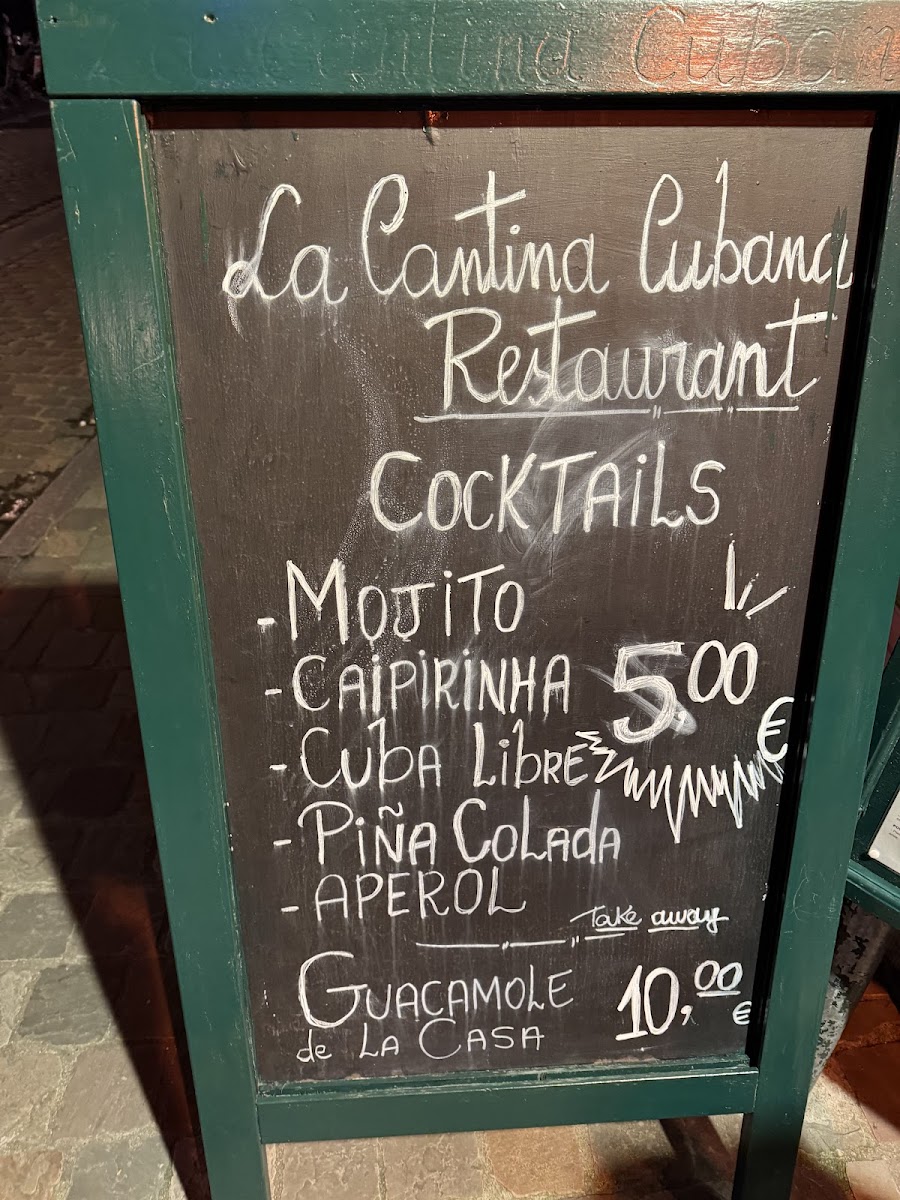 La Cantina Cuban
La Cantina Cubana
Restaurant
COCKTAiLS
- MOJiTO
- CAiPiRiNHA
5,00 €
- Cuba LibRE
- PiÑA COLAdA
- APEROL
Take away
GUACAMOLE
de LA CASA
10,00 €